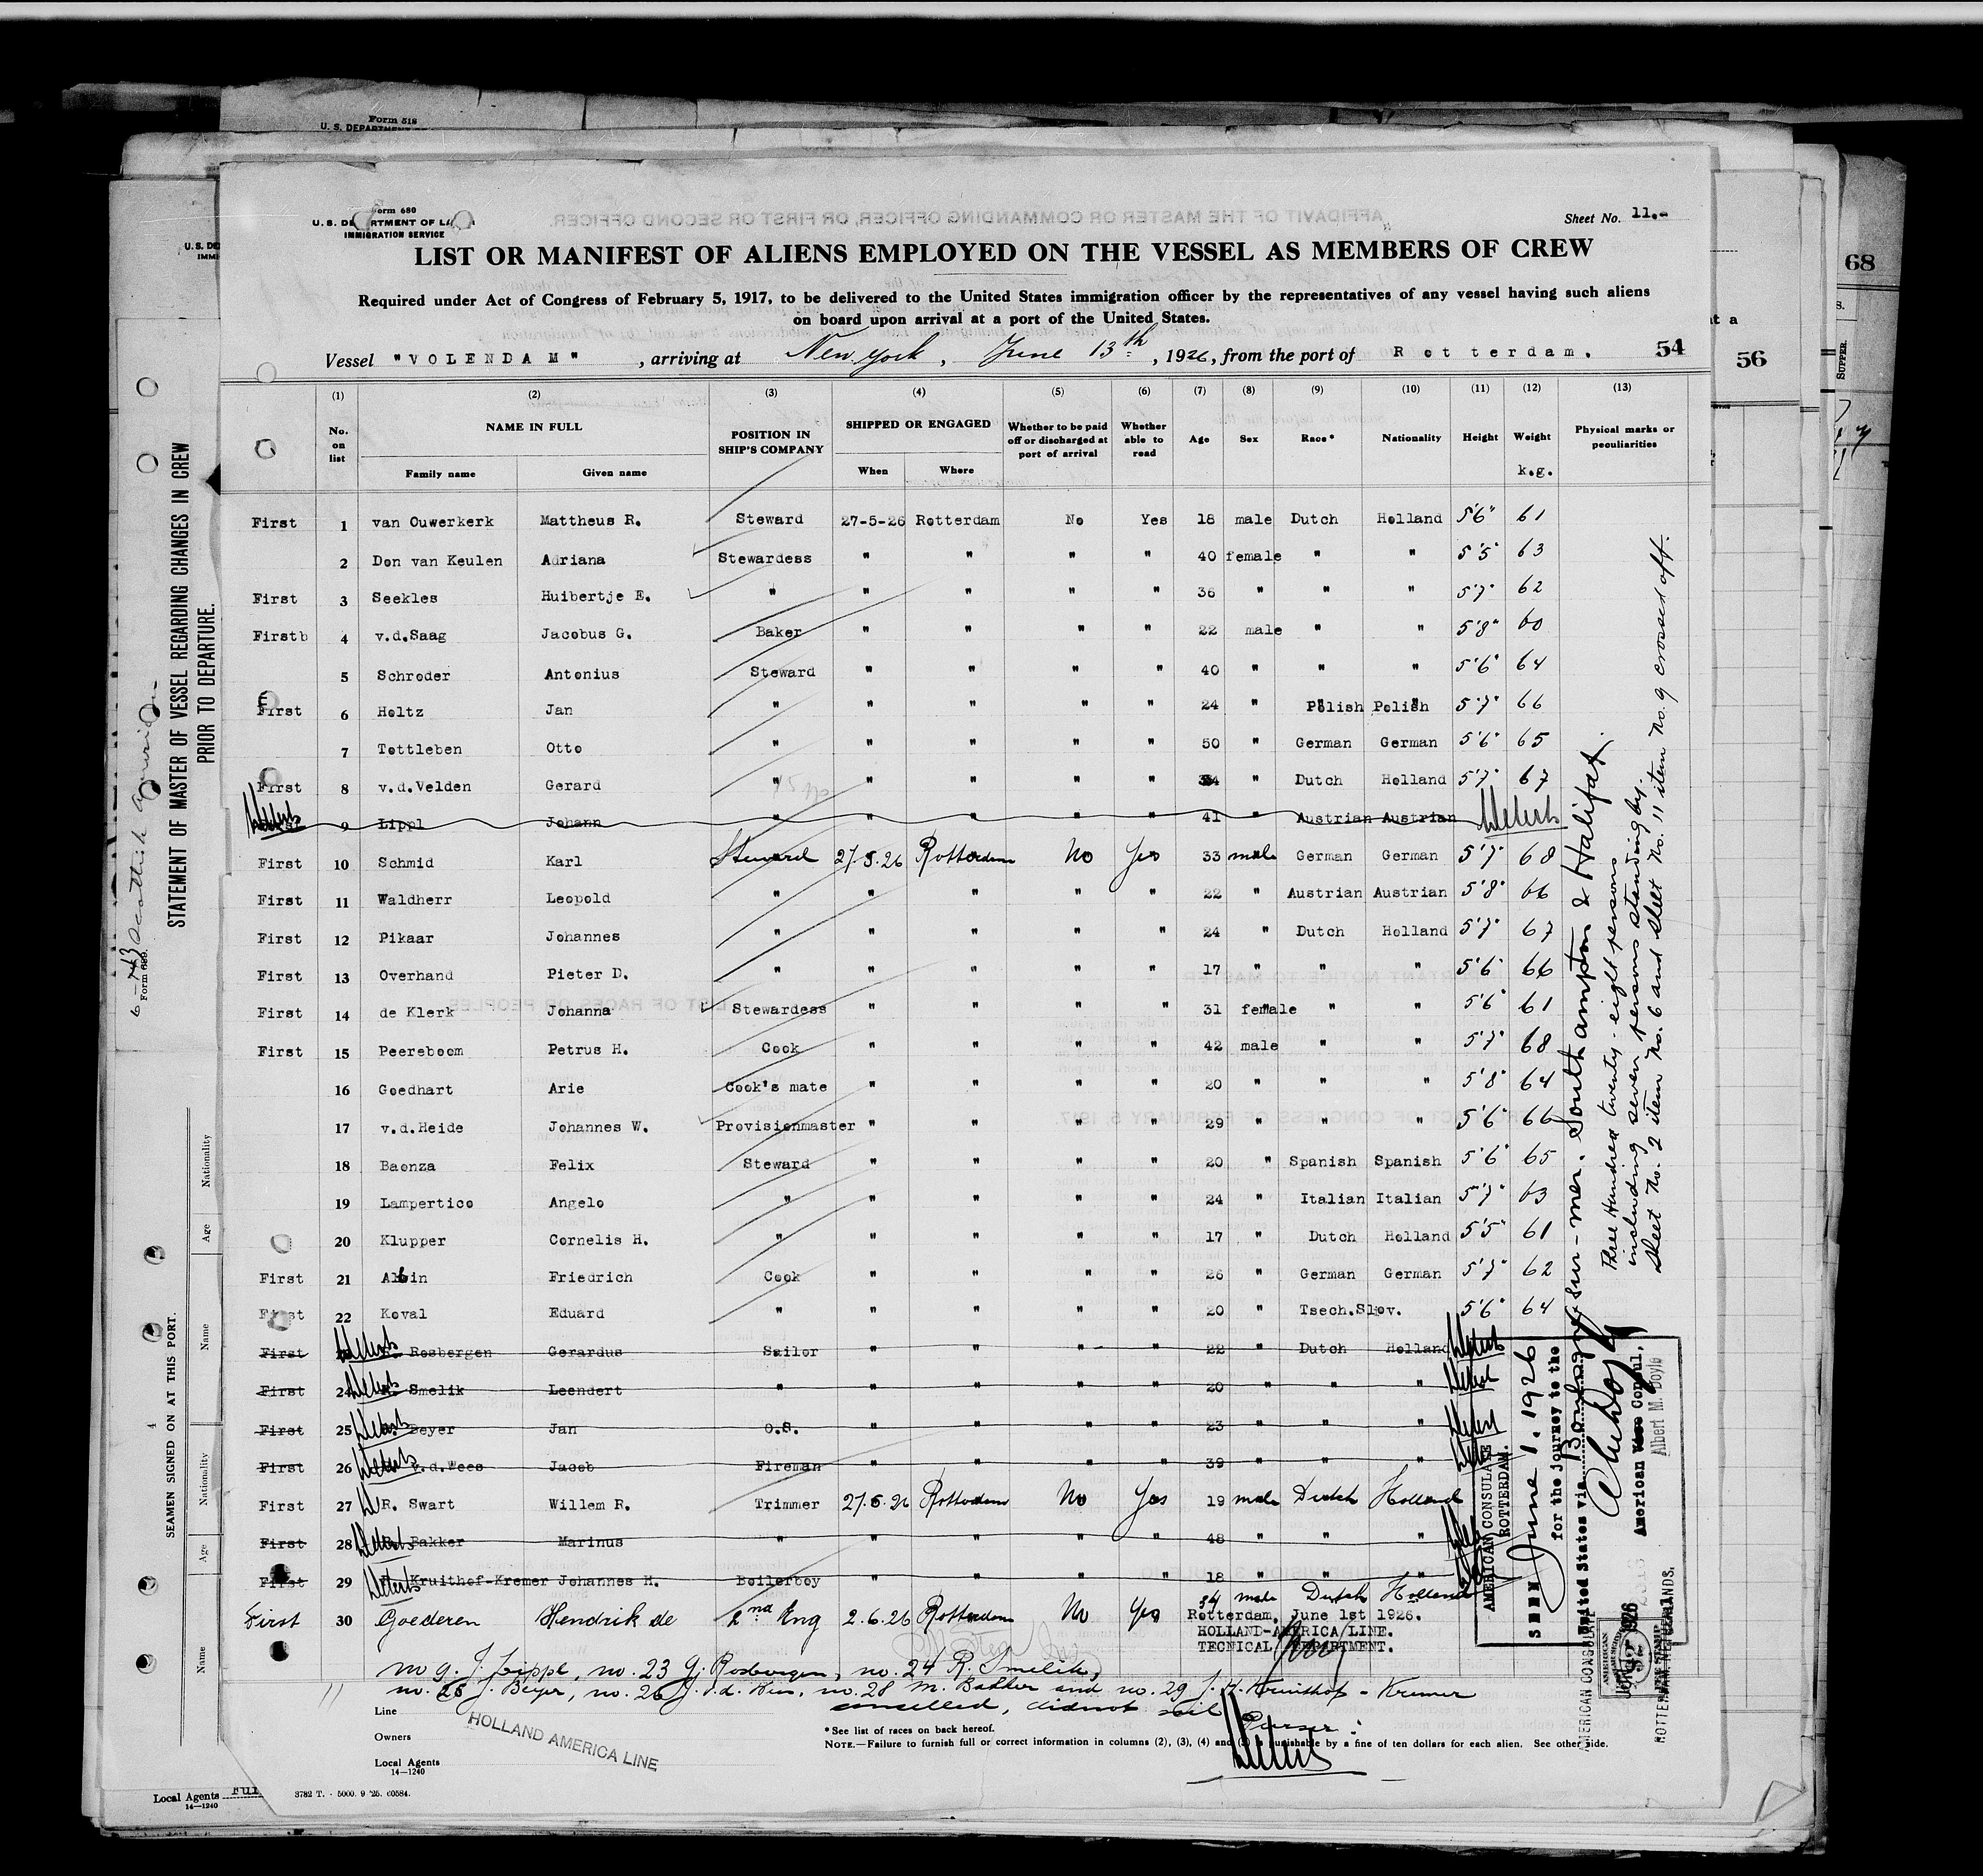 Form 518
U. S. DEPARTMENT
Form 680
U. S. DEPARTMENT OF LA
IMMIGRATION SERVICE
Sheet No. 11.-
LIST OR MANIFEST OF ALIENS EMPLOYED ON THE VESSEL AS MEMBERS OF CREW
Required under Act of Congress of February 5, 1917, to be delivered to the United States immigration officer by the representatives of any vessel having such aliens
on board upon arrival at a port of the United States.
Vessel "VOLENDAM", arriving at New York, June 13th, 1926, from the port of Rotterdam. 54
56
68
(1) (2) (3) (4) (5) (6) (7) (8) (9) (10) (11) (12) (13)
No. on list NAME IN FULL Family name Given name POSITION IN SHIP'S COMPANY SHIPPED OR ENGAGED When Where Whether to be paid off or discharged at port of arrival Whether able to read Age Sex Race* Nationality Height Weight k.g. Physical marks or peculiarities
First 1 van Ouwerkerk Mattheus R. Steward 27-5-26 Rotterdam No Yes 18 male Dutch Holland 5'6" 61
2 Don van Keulen Adriana Stewardess " " " " 40 female " " 5'5" 63
First 3 Seekles Huibertje E. " " " " " 36 " " " 5'7" 62
Firstb 4 v.d.Saag Jacobus G. Baker " " " " 22 male " " 5'8" 60
5 Schroder Antonius Steward " " " " 40 " " " 5'6" 64
First 6 Holtz Jan " " " " " 24 " Polish Polish 5'7" 66
7 Tottleben Otto " " " " " 50 " German German 5'6" 65
First 8 v.d.Velden Gerard " " " " " 34 " Dutch Holland 5'7" 67
9 Lippl Johann " " " " " 41 " Austrian Austrian
First 10 Schmid Karl Steward 27.5.26 Rotterdam No Yes 33 male German German 5'7" 68
First 11 Waldherr Leopold " " " " " 22 " Austrian Austrian 5'8" 66
First 12 Pikaar Johannes " " " " " 24 " Dutch Holland 5'7" 67
First 13 Overhand Pieter D. " " " " " 17 " " " 5'6" 66
First 14 de Klerk Johanna Stewardess " " " " 31 female " " 5'6" 61
First 15 Peereboom Petrus H. Cook " " " " 42 male " " 5'7" 68
16 Goedhart Arie Cook's mate " " " " 20 " " " 5'8" 64
17 v.d.Heide Johannes W. Provisionmaster " " " " 29 " " " 5'6" 66
18 Baonza Felix Steward " " " " 20 " Spanish Spanish 5'6" 65
19 Lampertico Angelo " " " " " 24 " Italian Italian 5'7" 63
20 Klupper Cornelis H. " " " " " 17 " Dutch Holland 5'5" 61
First 21 Albin Friedrich Cook " " " " 26 " German German 5'7" 62
First 22 Koval Eduard " " " " " 20 " Tsech.Slov. 5'6" 64
First Rosbergen Gerardus Sailor " " " " 22 " Dutch Holland
First 24 Smelik Leendert " " " " " 20 " " "
First 25 Beyer Jan O.S. " " " " 23 " " "
First 26 v.d.Wees Jacob Fireman " " " " 39 " " "
First 27 R. Swart Willem R. Trimmer 27.5.26 Rotterdam No Yes 19 male Dutch Holland
First 28 Bakker Marinus " " " " " 48 " " "
First 29 Kruithof-Kremer Johannes H. Boilerboy " " " " 18 " " "
First 30 Goederen Hendrik de 2nd Eng 2.6.26 Rotterdam No Yes 34 male Dutch Holland
Rotterdam, June 1st 1926.
HOLLAND-AMERICA LINE.
TECNICAL DEPARTMENT.
no 9. J. Lippl, no. 23 G. Rosbergen, no. 24 R. Smelik,
no. 25 J. Beyer, no. 26 J. v.d. Wees, no. 28 M. Bakker and no. 29 J. H. Kruithof - Kremer
cancelled, did not sail Purser:
Line
Owners
Local Agents
14—1240
HOLLAND AMERICA LINE
*See list of races on back hereof.
NOTE.—Failure to furnish full or correct information in columns (2), (3), (4) and is punishable by a fine of ten dollars for each alien. See other side.
3782 T. - 5000. 9 '25. 60584.
Boulogne sur-mer. Southampton & Halifax.
Three Hundred twenty-eight persons
including seven persons standing by.
Sheet No. 2 item No. 6 and sheet No. 11 item No. 9 crossed off.
AMERICAN CONSULATE
ROTTERDAM.
SEEN June 1. 1926
for the journey to the
United States via
American Vice Consul,
Albert M. Doyle
AMERICAN CONSULATE
ROTTERDAM, NETHERLANDS.
STATEMENT OF MASTER OF VESSEL REGARDING CHANGES IN CREW
PRIOR TO DEPARTURE.
Form 689
SEAMEN SIGNED ON AT THIS PORT.
Nationality
Age
Name
Nationality
Age
Name
Local Agents
14—1240